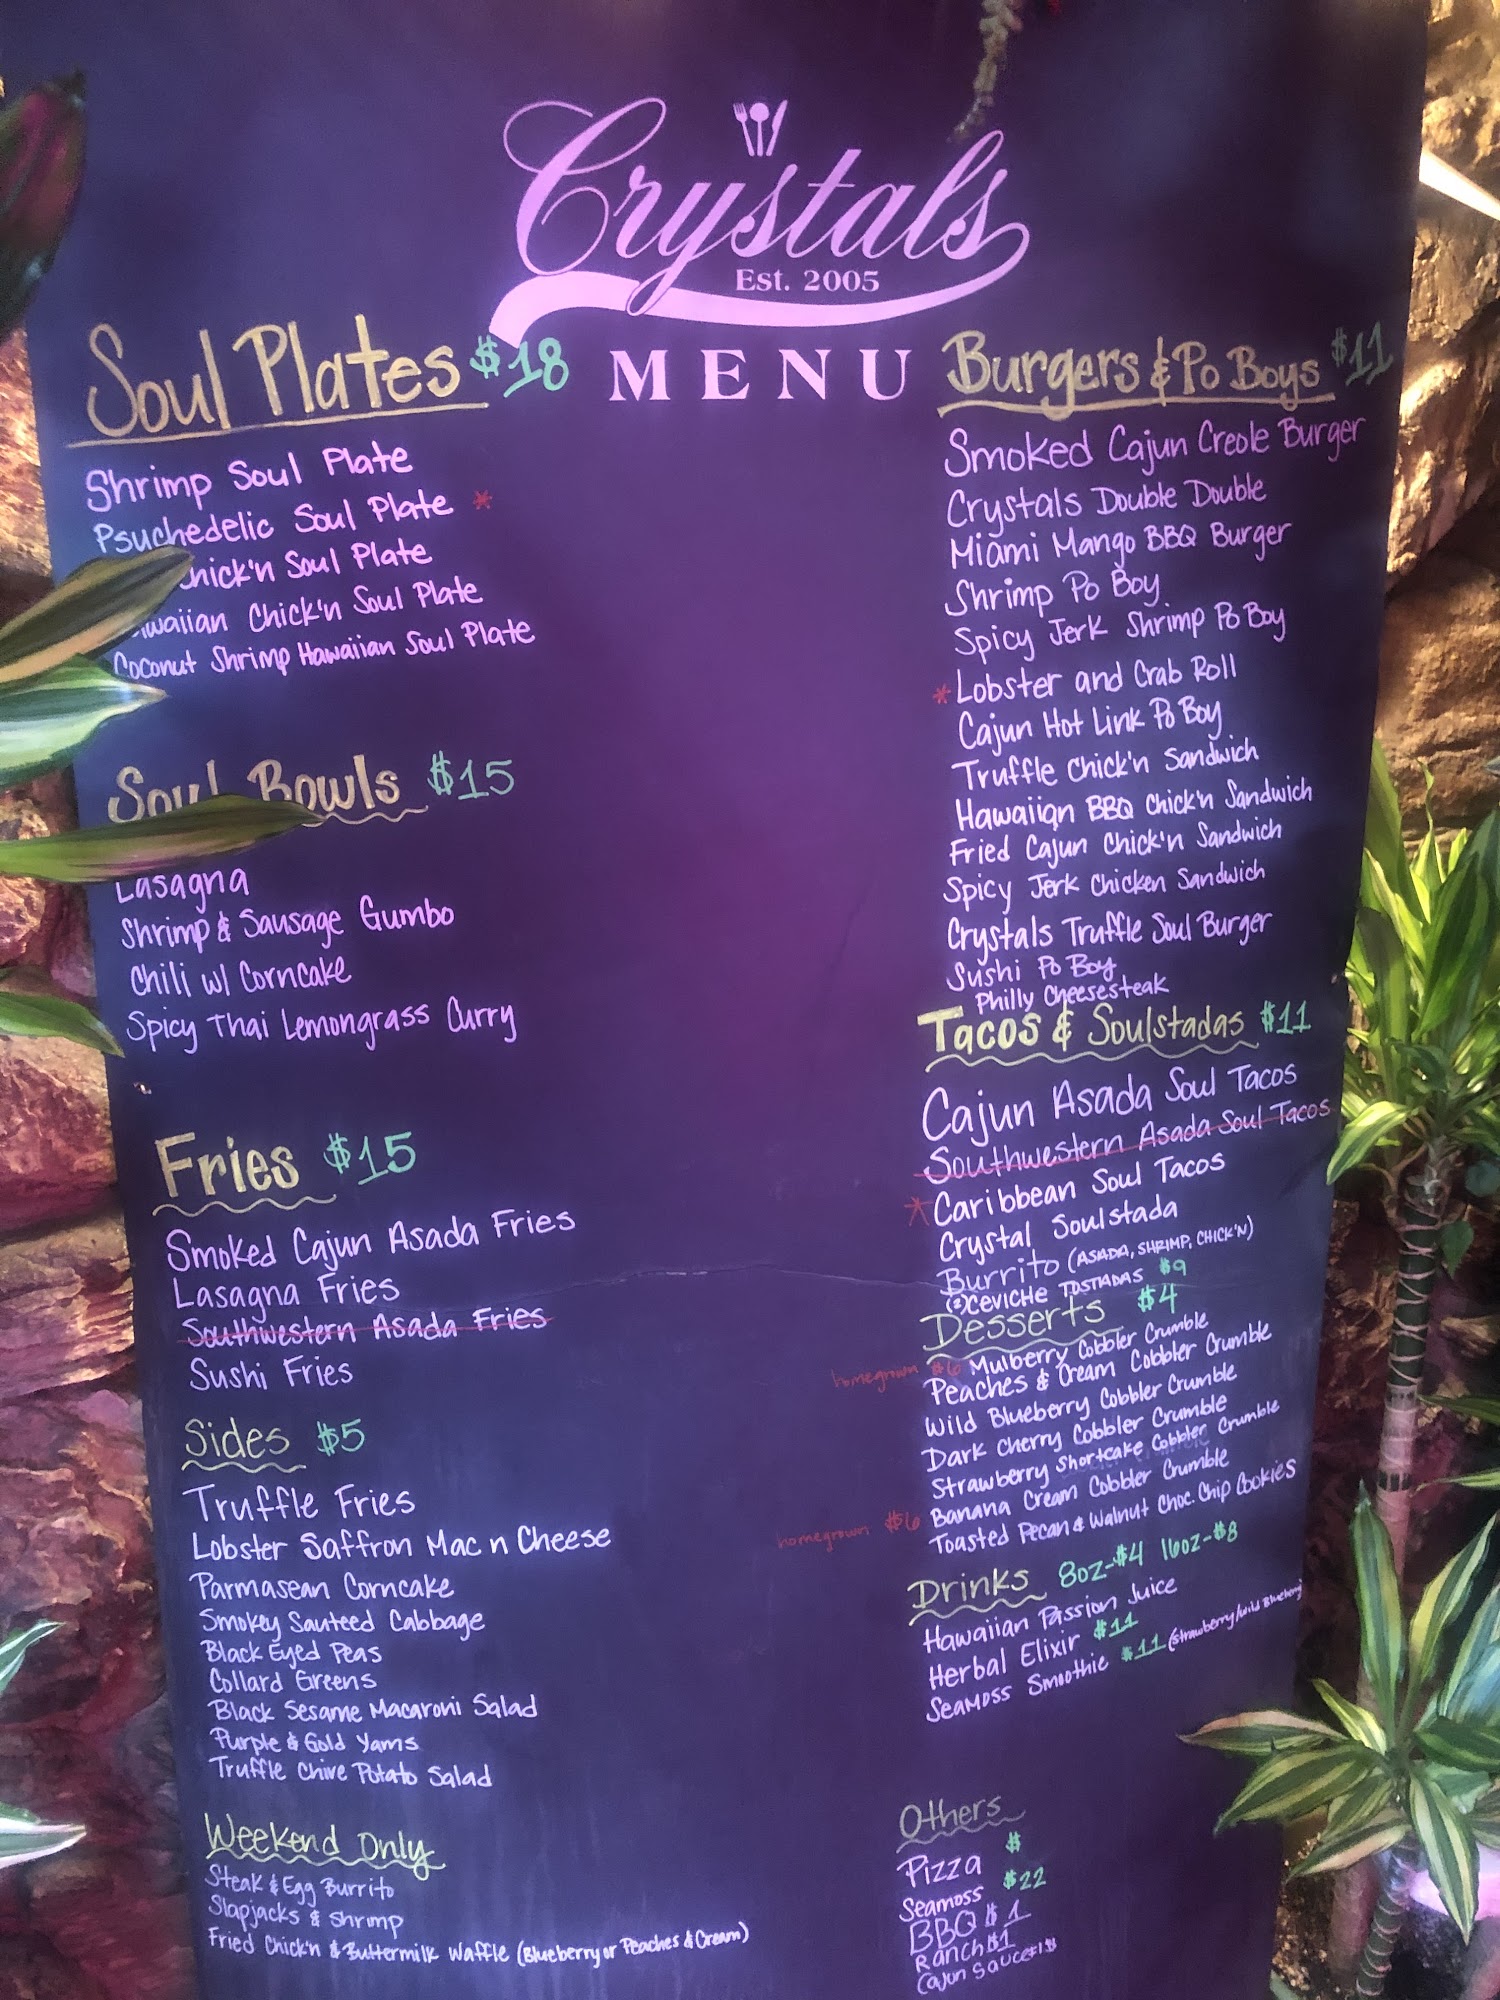 Crystals
Est. 2005
MENU
Soul Plates $18
Shrimp Soul Plate
Psychedelic Soul Plate *
Chick'n Soul Plate
Hawaiian Chick'n Soul Plate
Coconut Shrimp Hawaiian Soul Plate
Soul Bowls $15
Lasagna
Shrimp & Sausage Gumbo
Chili w/ Corncake
Spicy Thai Lemongrass Curry
Fries $15
Smoked Cajun Asada Fries
Lasagna Fries
Southwestern Asada Fries
Sushi Fries
Sides $5
Truffle Fries
Lobster Saffron Mac n Cheese
Parmasean Corncake
Smokey Sauteed Cabbage
Black Eyed Peas
Collard Greens
Black Sesame Macaroni Salad
Purple & Gold Yams
Truffle Chive Potato Salad
Weekend Only
Steak & Egg Burrito
Slapjacks & Shrimp
Fried Chick'n & Buttermilk Waffle (Blueberry or Peaches & Cream)
Burgers & Po Boys $11
Smoked Cajun Creole Burger
Crystals Double Double
Miami Mango BBQ Burger
Shrimp Po Boy
Spicy Jerk Shrimp Po Boy
* Lobster and Crab Roll
Cajun Hot Link Po Boy
Truffle Chick'n Sandwich
Hawaiian BBQ Chick'n Sandwich
Fried Cajun Chick'n Sandwich
Spicy Jerk Chicken Sandwich
Crystals Truffle Soul Burger
Sushi Po Boy
Philly Cheesesteak
Tacos & Soulstadas $11
Cajun Asada Soul Tacos
Southwestern Asada Soul Tacos
* Caribbean Soul Tacos
Crystal Soulstada
Burrito (ASADA, SHRIMP, CHICK'N)
(2) CEVICHE TOSTADAS $9
Desserts $4
homegrown $6 Mulberry Cobbler Crumble
Peaches & Cream Cobbler Crumble
Wild Blueberry Cobbler Crumble
Dark Cherry Cobbler Crumble
Strawberry Shortcake Cobbler Crumble
homegrown $6 Banana Cream Cobbler Crumble
Toasted Pecan & Walnut Choc. Chip Cookies
Drinks 8oz-$4 16oz-$8
Hawaiian Passion Juice
Herbal Elixir $11
Seamoss Smoothie $11 (Strawberry/Wild Blueberry)
Others
Pizza $
Seamoss $22
BBQ $1
Ranch $1
Cajun Sauce